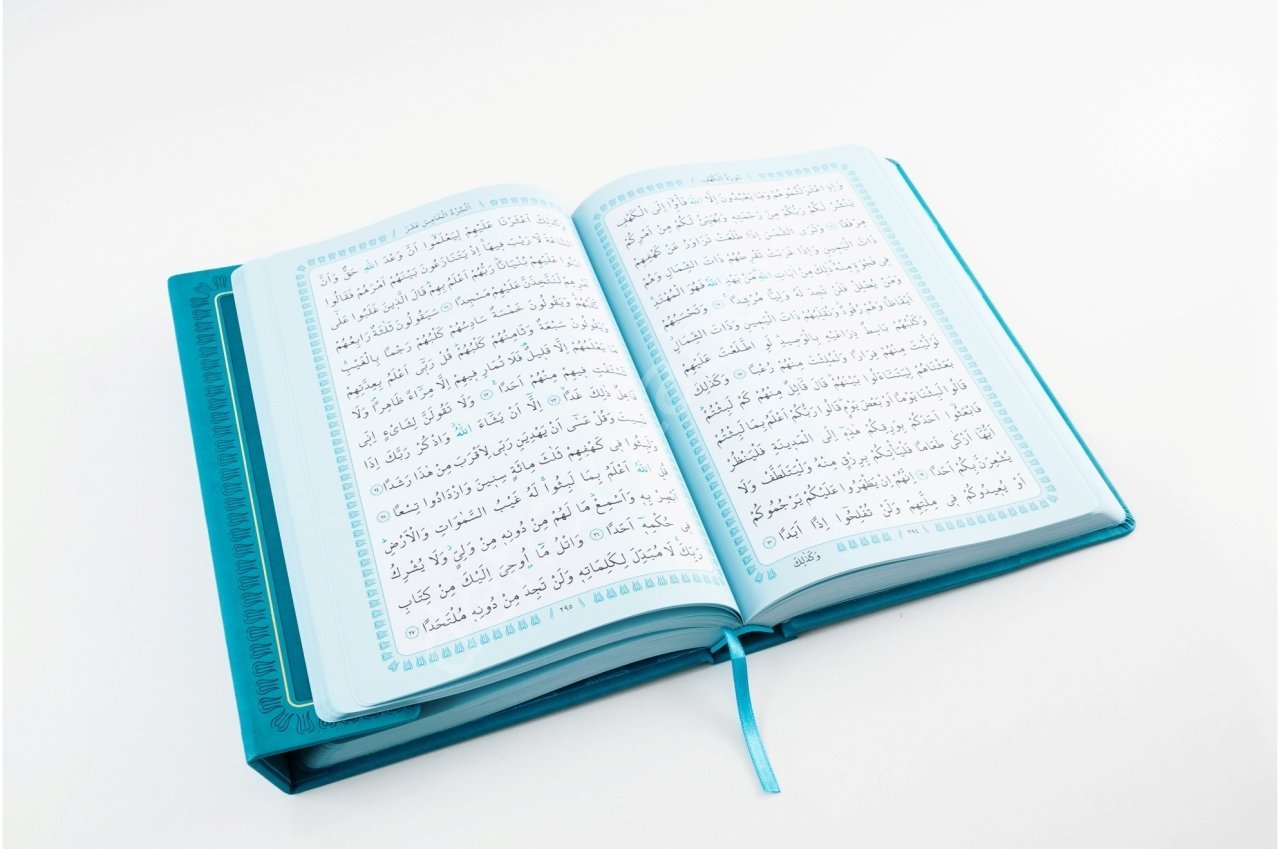 سُورَةُ الْكَهْفِ
وَاِذِ اعْتَزَلْتُمُوهُمْ وَمَا يَعْبُدُونَ اِلَّا اللّٰهَ فَأْوُٓا اِلَى الْكَهْفِ
يَنْشُرْ لَكُمْ رَبُّكُمْ مِنْ رَحْمَتِه۪ وَيُهَيِّئْ لَكُمْ مِنْ اَمْرِكُمْ
مِرْفَقًا ﴿١٦﴾ وَتَرَى الشَّمْسَ اِذَا طَلَعَتْ تَزَاوَرُ عَنْ كَهْفِهِمْ
ذَاتَ الْيَم۪ينِ وَاِذَا غَرَبَتْ تَقْرِضُهُمْ ذَاتَ الشِّمَالِ وَهُمْ
ف۪ي فَجْوَةٍ مِنْهُ ذٰلِكَ مِنْ اٰيَاتِ اللّٰهِ مَنْ يَهْدِ اللّٰهُ فَهُوَ الْمُهْتَدِ
وَمَنْ يُضْلِلْ فَلَنْ تَجِدَ لَهُ وَلِيًّا مُرْشِدًا ﴿١٧﴾ وَتَحْسَبُهُمْ
اَيْقَاظًا وَهُمْ رُقُودٌ وَنُقَلِّبُهُمْ ذَاتَ الْيَم۪ينِ وَذَاتَ الشِّمَالِ
وَكَلْبُهُمْ بَاسِطٌ ذِرَاعَيْهِ بِالْوَص۪يدِ لَوِ اطَّلَعْتَ عَلَيْهِمْ
لَوَلَّيْتَ مِنْهُمْ فِرَارًا وَلَمُلِئْتَ مِنْهُمْ رُعْبًا ﴿١٨﴾ وَكَذٰلِكَ
بَعَثْنَاهُمْ لِيَتَسَٓاءَلُوا بَيْنَهُمْ قَالَ قَٓائِلٌ مِنْهُمْ كَمْ لَبِثْتُمْ
قَالُوا لَبِثْنَا يَوْمًا اَوْ بَعْضَ يَوْمٍ قَالُوا رَبُّكُمْ اَعْلَمُ بِمَا لَبِثْتُمْ
فَابْعَثُٓوا اَحَدَكُمْ بِوَرِقِكُمْ هٰذِه۪ٓ اِلَى الْمَد۪ينَةِ فَلْيَنْظُرْ
اَيُّهَٓا اَزْكٰى طَعَامًا فَلْيَأْتِكُمْ بِرِزْقٍ مِنْهُ وَلْيَتَلَطَّفْ وَلَا
يُشْعِرَنَّ بِكُمْ اَحَدًا ﴿١٩﴾ اِنَّهُمْ اِنْ يَظْهَرُوا عَلَيْكُمْ يَرْجُمُوكُمْ
اَوْ يُع۪يدُوكُمْ ف۪ي مِلَّتِهِمْ وَلَنْ تُفْلِحُٓوا اِذًا اَبَدًا ﴿٢٠﴾
٢٩٤
وَكَذٰلِكَ
اَلْجُزْءُ الْخَامِسَ عَشَرَ
وَكَذٰلِكَ اَعْثَرْنَا عَلَيْهِمْ لِيَعْلَمُٓوا اَنَّ وَعْدَ اللّٰهِ حَقٌّ وَاَنَّ
السَّاعَةَ لَا رَيْبَ ف۪يهَا اِذْ يَتَنَازَعُونَ بَيْنَهُمْ اَمْرَهُمْ فَقَالُوا
ابْنُوا عَلَيْهِمْ بُنْيَانًا رَبُّهُمْ اَعْلَمُ بِهِمْ قَالَ الَّذ۪ينَ غَلَبُوا عَلٰٓى
اَمْرِهِمْ لَنَتَّخِذَنَّ عَلَيْهِمْ مَسْجِدًا ﴿٢١﴾ سَيَقُولُونَ ثَلٰثَةٌ رَابِعُهُمْ
كَلْبُهُمْ وَيَقُولُونَ خَمْسَةٌ سَادِسُهُمْ كَلْبُهُمْ رَجْمًا بِالْغَيْبِ
وَيَقُولُونَ سَبْعَةٌ وَثَامِنُهُمْ كَلْبُهُمْ قُلْ رَبّ۪ٓي اَعْلَمُ بِعِدَّتِهِمْ
مَا يَعْلَمُهُمْ اِلَّا قَل۪يلٌ فَلَا تُمَارِ ف۪يهِمْ اِلَّا مِرَٓاءً ظَاهِرًا وَلَا
تَسْتَفْتِ ف۪يهِمْ مِنْهُمْ اَحَدًا ﴿٢٢﴾ وَلَا تَقُولَنَّ لِشَا۬يْءٍ اِنّ۪ي
فَاعِلٌ ذٰلِكَ غَدًا ﴿٢٣﴾ اِلَّٓا اَنْ يَشَٓاءَ اللّٰهُ وَاذْكُرْ رَبَّكَ اِذَا
نَس۪يتَ وَقُلْ عَسٰٓى اَنْ يَهْدِيَنِ رَبّ۪ي لِاَقْرَبَ مِنْ هٰذَا رَشَدًا ﴿٢٤﴾
وَلَبِثُوا ف۪ي كَهْفِهِمْ ثَلٰثَ مِائَةٍ سِن۪ينَ وَازْدَادُوا تِسْعًا ﴿٢٥﴾
قُلِ اللّٰهُ اَعْلَمُ بِمَا لَبِثُوا لَهُ غَيْبُ السَّمٰوَاتِ وَالْاَرْضِ
اَبْصِرْ بِه۪ وَاَسْمِعْ مَا لَهُمْ مِنْ دُونِه۪ مِنْ وَلِيٍّ وَلَا يُشْرِكُ
ف۪ي حُكْمِه۪ٓ اَحَدًا ﴿٢٦﴾ وَاتْلُ مَٓا اُو۫حِيَ اِلَيْكَ مِنْ كِتَابِ
رَبِّكَ لَا مُبَدِّلَ لِكَلِمَاتِه۪ وَلَنْ تَجِدَ مِنْ دُونِه۪ مُلْتَحَدًا ﴿٢٧﴾
٢٩٥